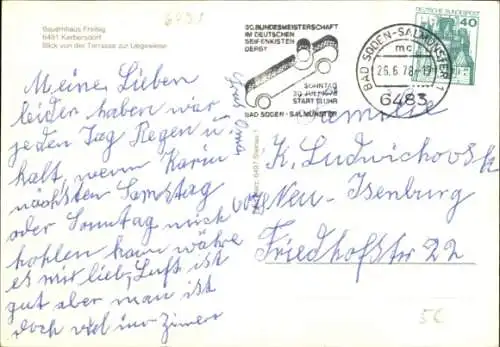 Bauernhaus Freitag
6491 Kerbersdorf
Blick von der Terrasse zur Liegewiese
30. BUNDESMEISTERSCHAFT
IM DEUTSCHEN
SEIFENKISTEN
DERBY
SONNTAG
30. JULI 1978
START 13 UHR
BAD SODEN-SALMÜNSTER
BAD SODEN-SALMÜNSTER 1
mc
26.6.78
6483
DEUTSCHE BUNDESPOST
40
Meine Lieben
leider haben wir
jeden Tag Regen u
kalt, wenn Karin
nächsten Samstag
oder Sonntag mich
hohlen kann währe
es mir lieb, Luft ist
gut aber man ist
doch viel im Zimmer
Oma
Familie
K. Ludwichovsk
Neu-Isenburg
Friedhofstr 22
6497 Steinau 1
56